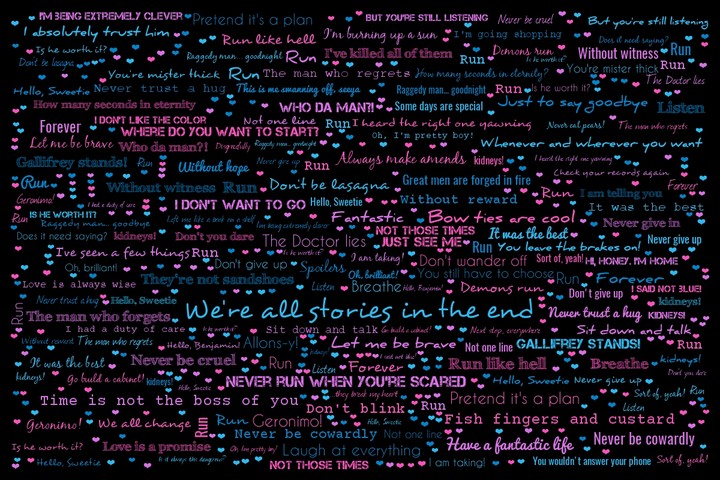 I'M BEING EXTREMELY CLEVER Pretend it's a plan BUT YOU'RE STILL LISTENING Never be cruel But you're still listening
I absolutely trust him Run like hell I'm burning up a sun I'm going shopping Does it need saying?
Is he worth it? Raggedy man... goodnight Run I've killed all of them Run Demons run Is he worth it? Without witness Run
Don't be lasagna You're mister thick Run The man who regrets How many seconds in eternity? You're mister thick Run
The Doctor lies
Hello, Sweetie Never trust a hug This is me swanning off, seeya Raggedy man... goodnight Run Is he worth it?
How many seconds in eternity WHO DA MAN?! Some days are special Just to say goodbye Listen
Forever I DON'T LIKE THE COLOR Not one line Run I heard the right one yawning Never eat pears! The man who regrets
WHERE DO YOU WANT TO START? Oh, I'm pretty boy!
Let me be brave Who da man?! Disgracefully Raggedy man... goodnight Whenever and wherever you want
Gallifrey stands! Run Without hope Never give up Run Always make amends kidneys! I heard the right one yawning
Check your records again
Run Without witness Run Don't be lasagna Great men are forged in fire Run I am telling you Forever
Geronimo! I had a duty of care I DON'T WANT TO GO Hello, Sweetie Without reward It was the best
Run IS HE WORTH IT? Lift me like a book on a shelf Fantastic Bow ties are cool Never give in
Raggedy man... goodbye I'm being extremely clever NOT THOSE TIMES It was the best
Does it need saying? kidneys! Don't you dare The Doctor lies JUST SEE ME Run You leave the brakes on! Never give up
I've seen a few things Run Is he worth it? I am taking! Don't wander off Sort of, yeah! HI, HONEY, I'M HOME
Oh, brilliant! Don't give up Spoilers Oh, brilliant! You still have to choose Run Forever
Love is always wise They're not sandshoes Listen Breathe Hello, Benjamin! Demons run Don't give up I SAID NOT BLUE!
Never trust a hug Hello, Sweetie kidneys!
Run The man who forgets We're all stories in the end Never trust a hug KIDNEYS!
I had a duty of care Is he worth it? Sit down and talk Go build a cabinet! Next stop, everywhere Sit down and talk
Without reward The man who regrets Hello, Benjamin! Allons-y! Let me be brave Not one line GALLIFREY STANDS! Run
It was the best Never be cruel Run Forever Run like hell Breathe kidneys!
kidneys! Go build a cabinet! kidneys! Listen Don't you dare
Hello, Sweetie NEVER RUN WHEN YOU'RE SCARED Hello, Sweetie Never give up
Time is not the boss of you they break my heart Pretend it's a plan Sort of, yeah! Run
Don't blink Run Listen
Geronimo! We all change Run Run Geronimo! Hello, Sweetie Fish fingers and custard
Never be cowardly Not one line
Is he worth it? Love is a promise Oh, I'm pretty boy! Laugh at everything Have a fantastic life Never be cowardly
Hello, Sweetie Is it always this dangerous? NOT THOSE TIMES I am taking! You wouldn't answer your phone Sort of, yeah!